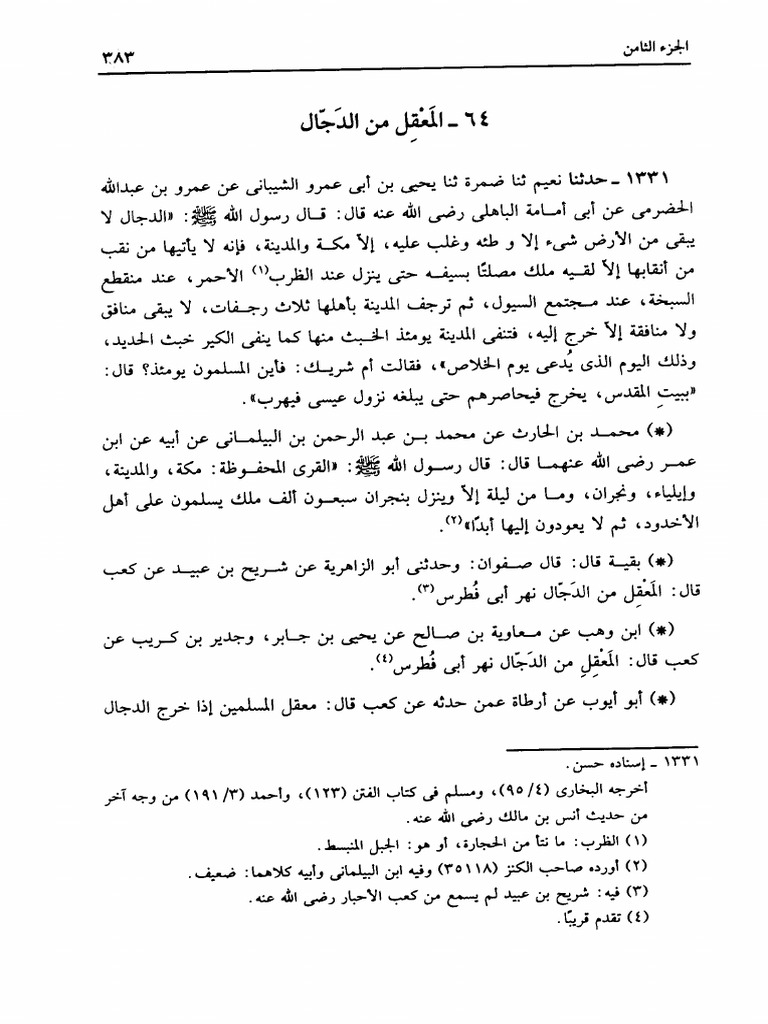 الجزء الثامن ٣٨٣
٦٤ - المَعْقِل من الدَجّال
١٣٣١ - حدثنا نعيم ثنا ضمرة ثنا يحيى بن أبى عمرو الشيبانى عن عمرو بن عبدالله
الحضرمى عن أبى أمامة الباهلى رضى الله عنه قال: قال رسول الله ﷺ: «الدجال لا
يبقى من الأرض شىء إلا و طئه وغلب عليه، إلاّ مكة والمدينة، فإنه لا يأتيها من نقب
من أنقابها إلاّ لقيه ملك مصلتًا بسيفه حتى ينزل عند الظرب(١) الأحمر، عند منقطع
السبخة، عند مجتمع السيول، ثم ترجف المدينة بأهلها ثلاث رجفات، لا يبقى منافق
ولا منافقة إلاّ خرج إليه، فتنفى المدينة يومئذ الخبث منها كما ينفى الكير خبث الحديد،
وذلك اليوم الذى يُدعى يوم الخلاص»، فقالت أم شريك: فأين المسلمون يومئذ؟ قال:
«ببيتِ المقدس، يخرج فيحاصرهم حتى يبلغه نزول عيسى فيهرب».
(*) محمد بن الحارث عن محمد بن عبد الرحمن بن البيلمانى عن أبيه عن ابن
عمر رضى الله عنهما قال: قال رسول الله ﷺ: «القرى المحفوظة: مكة، والمدينة،
وإيلياء، ونجران، وما من ليلة إلاّ وينزل بنجران سبعون ألف ملك يسلمون على أهل
الأخدود، ثم لا يعودون إليها أبدًا»(٢).
(*) بقية قال: قال صفوان: وحدثنى أبو الزاهرية عن شريح بن عبيد عن كعب
قال: المَعْقِل من الدَجّال نهر أبى فُطرس(٣).
(*) ابن وهب عن معاوية بن صالح عن يحيى بن جابر، وجدير بن كريب عن
كعب قال: المَعْقِلِ من الدَجّال نهر أبى فُطرس(٤).
(*) أبو أيوب عن أرطاة عمن حدثه عن كعب قال: معقل المسلمين إذا خرج الدجال
١٣٣١ - إسناده حسن.
أخرجه البخارى (٤/ ٩٥)، ومسلم فى كتاب الفتن (١٢٣)، وأحمد (٣/ ١٩١) من وجه آخر
من حديث أنس بن مالك رضى الله عنه.
(١) الظرب: ما نتأ من الحجارة، أو هو: الجبل المنبسط.
(٢) أورده صاحب الكنز (٣٥١١٨) وفيه ابن البيلمانى وأبيه كلاهما: ضعيف.
(٣) فيه: شريح بن عبيد لم يسمع من كعب الأحبار رضى الله عنه.
(٤) تقدم قريبًا.